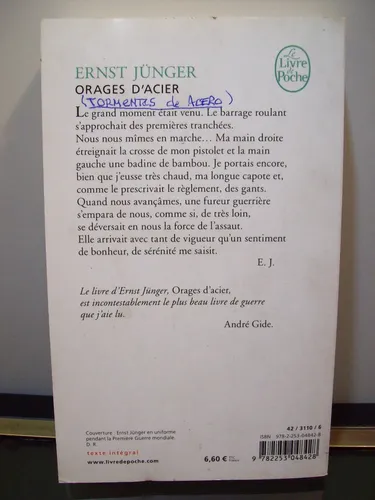 Le
Livre
de
Poche
ERNST JÜNGER
ORAGES D'ACIER
(TORMENTES de ACERO)
Le grand moment était venu. Le barrage roulant
s'approchait des premières tranchées.
Nous nous mîmes en marche... Ma main droite
étreignait la crosse de mon pistolet et la main
gauche une badine de bambou. Je portais encore,
bien que j'eusse très chaud, ma longue capote et,
comme le prescrivait le règlement, des gants.
Quand nous avançâmes, une fureur guerrière
s'empara de nous, comme si, de très loin,
se déversait en nous la force de l'assaut.
Elle arrivait avec tant de vigueur qu'un sentiment
de bonheur, de sérénité me saisit.
E. J.
Le livre d'Ernst Jünger, Orages d'acier,
est incontestablement le plus beau livre de guerre
que j'aie lu.
André Gide.
Couverture : Ernst Jünger en uniforme
pendant la Première Guerre mondiale.
D. R.
texte intégral
www.livredepoche.com
6,60 €
42 / 3110 / 6
ISBN : 978-2-253-04842-8
9 782253 048428